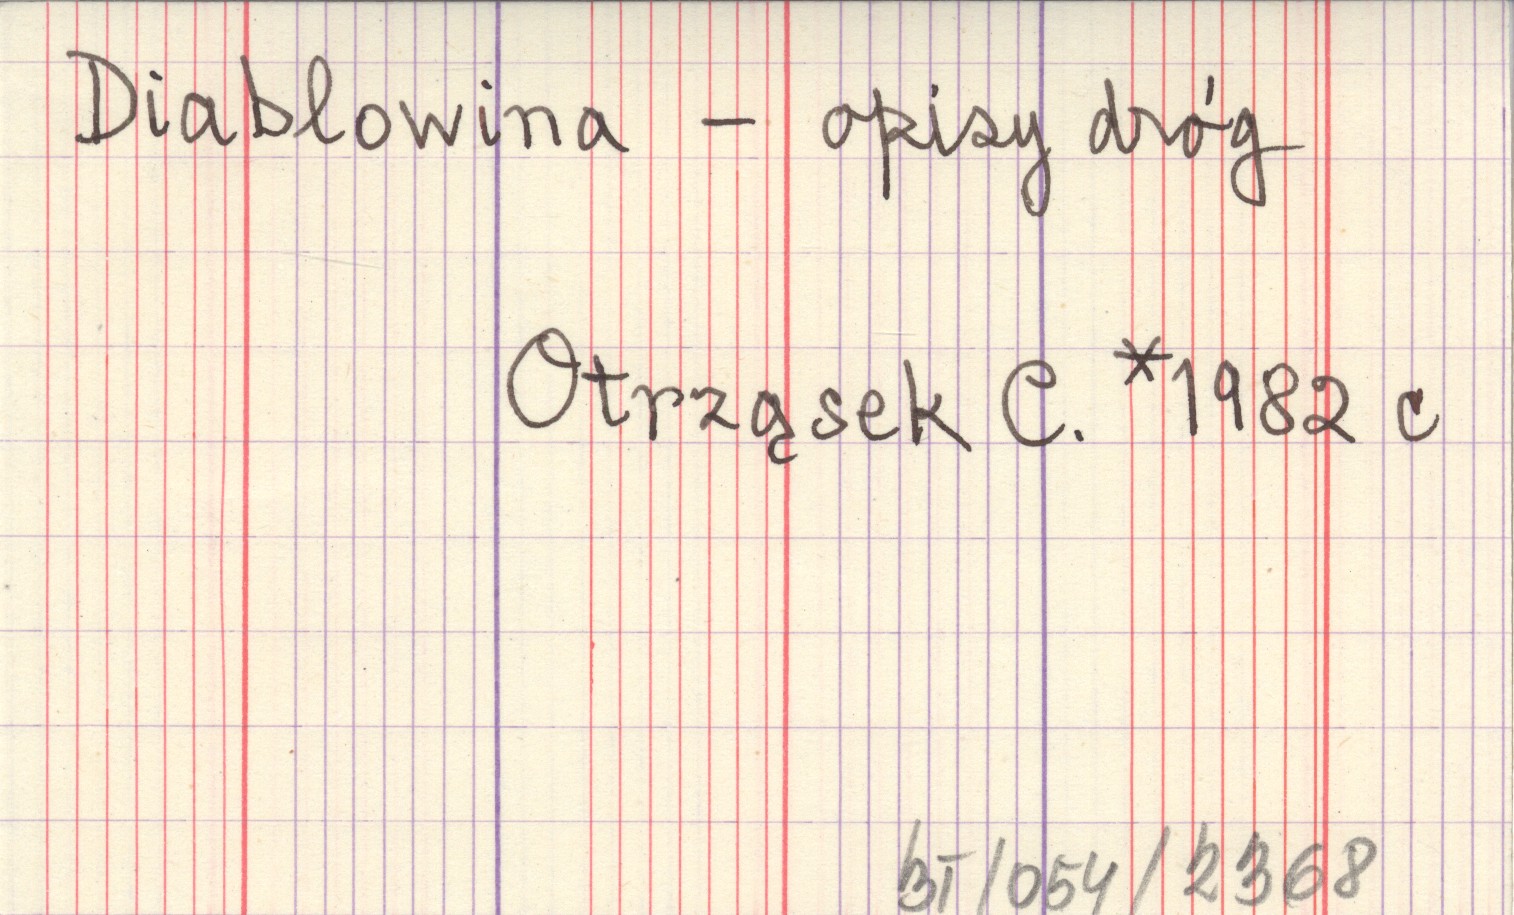 Diabłowina - opisy dróg
Otrząsek C. *1982 c
BT/054/2368